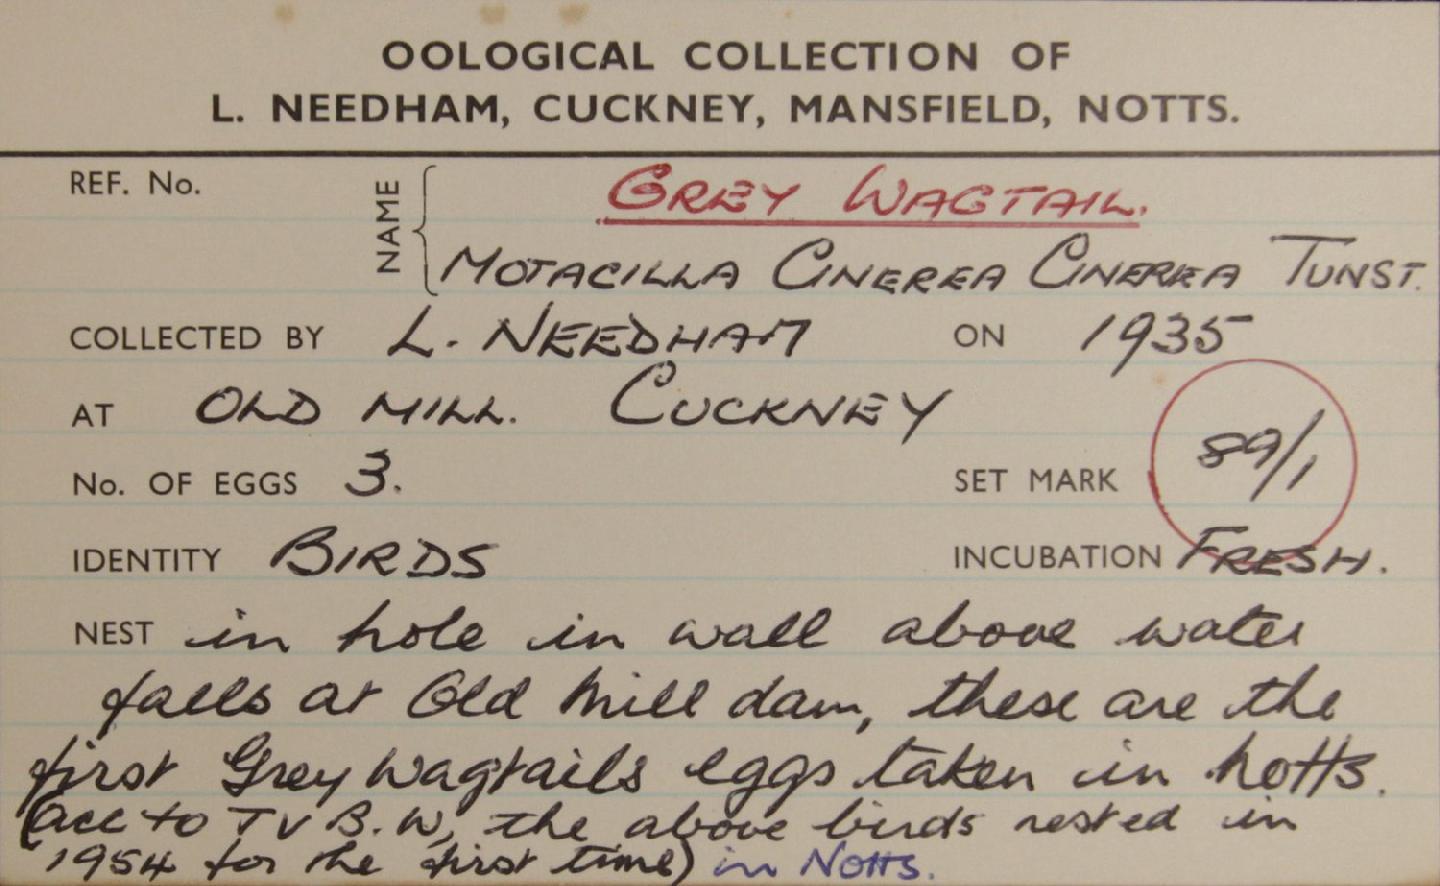 OOLOGICAL COLLECTION OF
L. NEEDHAM, CUCKNEY, MANSFIELD, NOTTS.
REF. No.
NAME
GREY WAGTAIL.
MOTACILLA CINEREA CINEREA TUNST.
COLLECTED BY L. NEEDHAM ON 1935
AT OLD MILL. CUCKNEY
No. OF EGGS 3. SET MARK 89/1
IDENTITY BIRDS INCUBATION FRESH.
NEST in hole in wall above water
falls at Old Mill dam, these are the
first Grey Wagtails eggs taken in Notts.
(acc to TV B.W, the above birds nested in
1954 for the first time) in Notts.